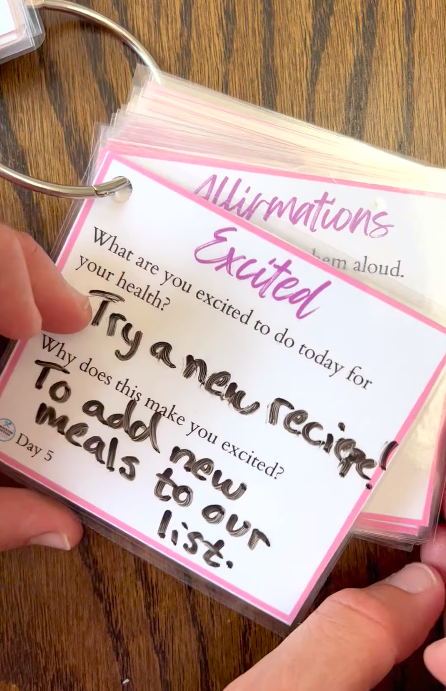 Affirmations
them aloud.
Excited
What are you excited to do today for
your health?
Try a new recipe!
Why does this make you excited?
To add new
meals to our
list.
Day 5